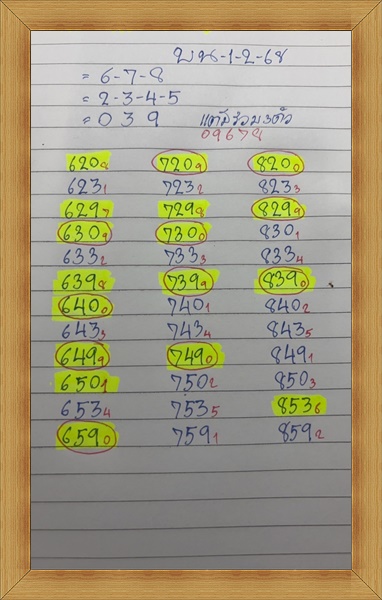 บน-1-2-68
= 6-7-8
= 2-3-4-5
= 0 3 9 แต้มรวม3ตัว
09678
6208 7209 8200
6231 7232 8233
6297 7298 8299
6309 7300 8301
6332 7333 8334
6398 7399 8390
6400 7401 8402
6433 7434 8435
6499 7490 8491
6501 7502 8503
6534 7535 8536
6590 7591 8592